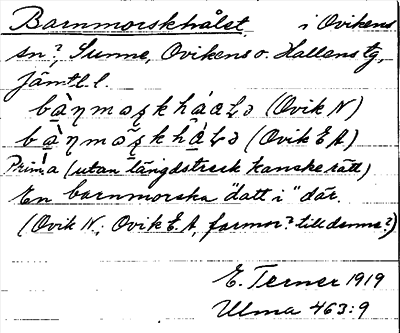 Barnmorskhålet i Ovikens
sn?, Sunne, Ovikens o. Hallens tg,
Jämtl. l.
(Ovik N)
(Ovik E A)
Prima (utan längdstreck kanske rätt)
En barnmorska "datt i" där.
(Ovik N; Ovik E. A, farmor? till denne?)
E. Terner 1919
Ulma 463:9